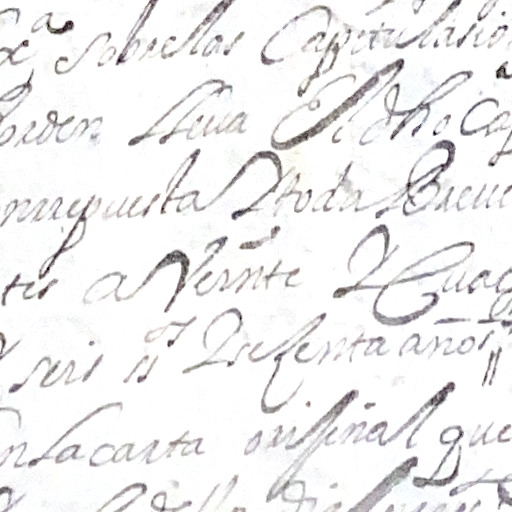 Exª sobrellas Capitulasio
orden lleua El dho Cap
rrepuesta Y toda Breue
tes a Veinte Y Cua
Y seis ss Y setenta años
en la carta orijinal que